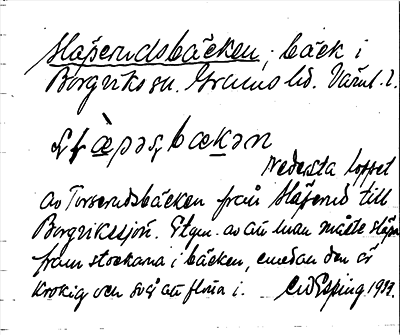 Släperudsbäcken, bäck i
Borgviks sn. Grums hd. Värml. l.
Nedersta loppet
av Torserudsbäcken från Släperud till
Borgviksjön. Etym. av att man måste släpa
fram stockarna i bäcken, emedan den är
krokig och svår att flöta i. 1919.